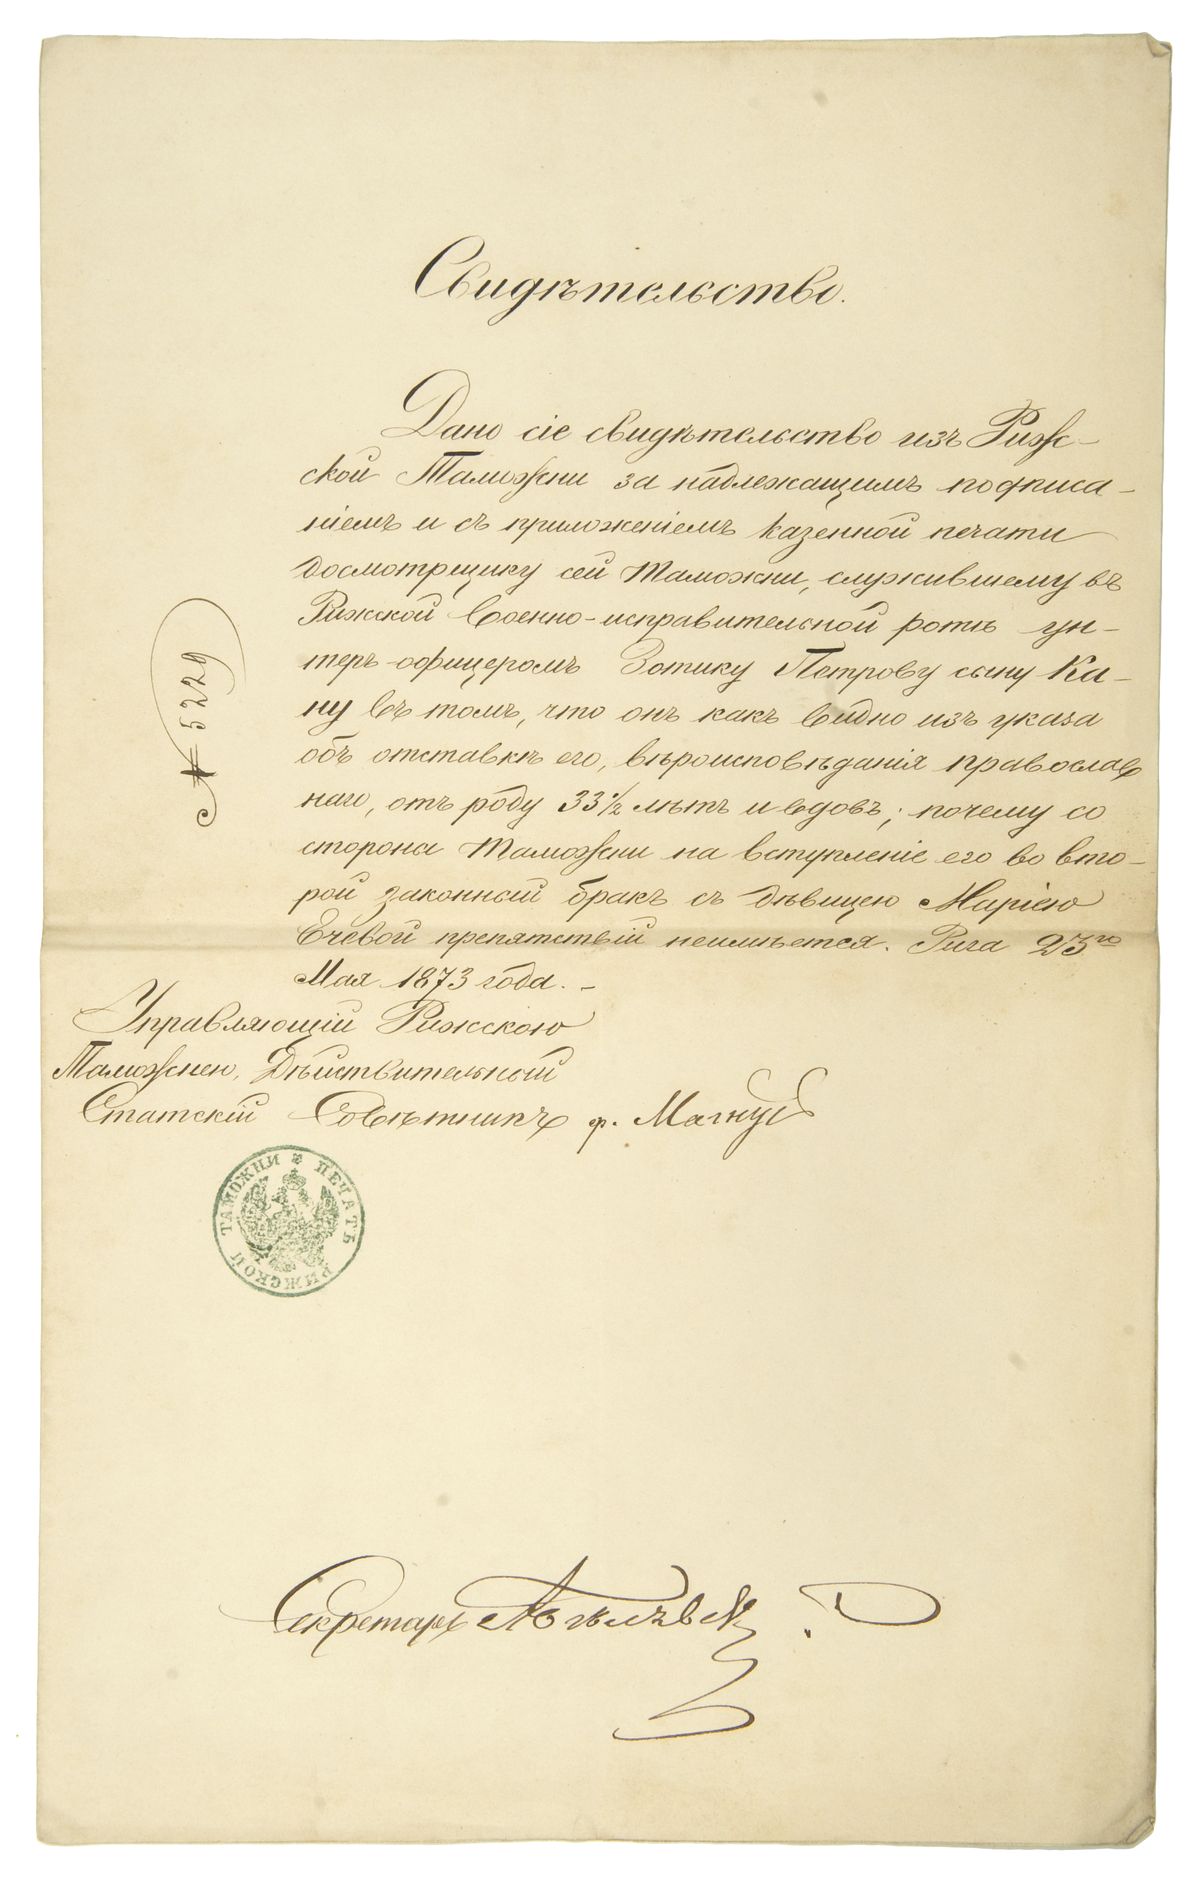 Свидѣтельство.
Дано сіе свидѣтельство изъ Рижс-
ской Таможни за надлежащимъ подписа-
ніемъ и съ приложеніемъ казенной печати
досмотрщику сей Таможни, служившему въ
Рижской Военно-исправительной ротѣ ун-
теръ-офицеромъ Зотику Петрову сыну Ка-
ну въ томъ, что онъ какъ видно изъ указа
объ отставкѣ его, вѣроисповѣданія православ
наго, отъ роду 33½ лѣтъ и вдовъ; почему со
стороны Таможни на вступленіе его во вто-
рой законный бракъ съ дѣвицею Маріею
Ечевой препятствій неимѣется. Рига 23го
Мая 1873 года. -
№ 5229
Управляющій Рижскою
Таможнею, Дѣйствительный
Статскій Совѣтникъ ф. Магнусъ
ПЕЧАТЬ РИЖСКОЙ ТАМОЖНИ
Секретарь